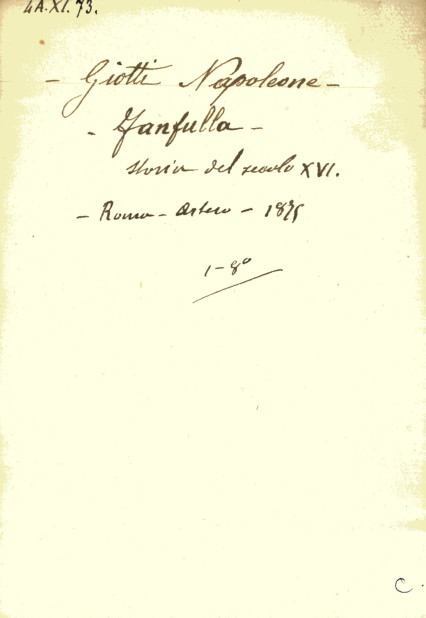 4A.XI.73.
- Giotti Napoleone -
- Fanfulla -
storia del secolo XVI.
- Roma - Astero - 1875
1-8º
C.